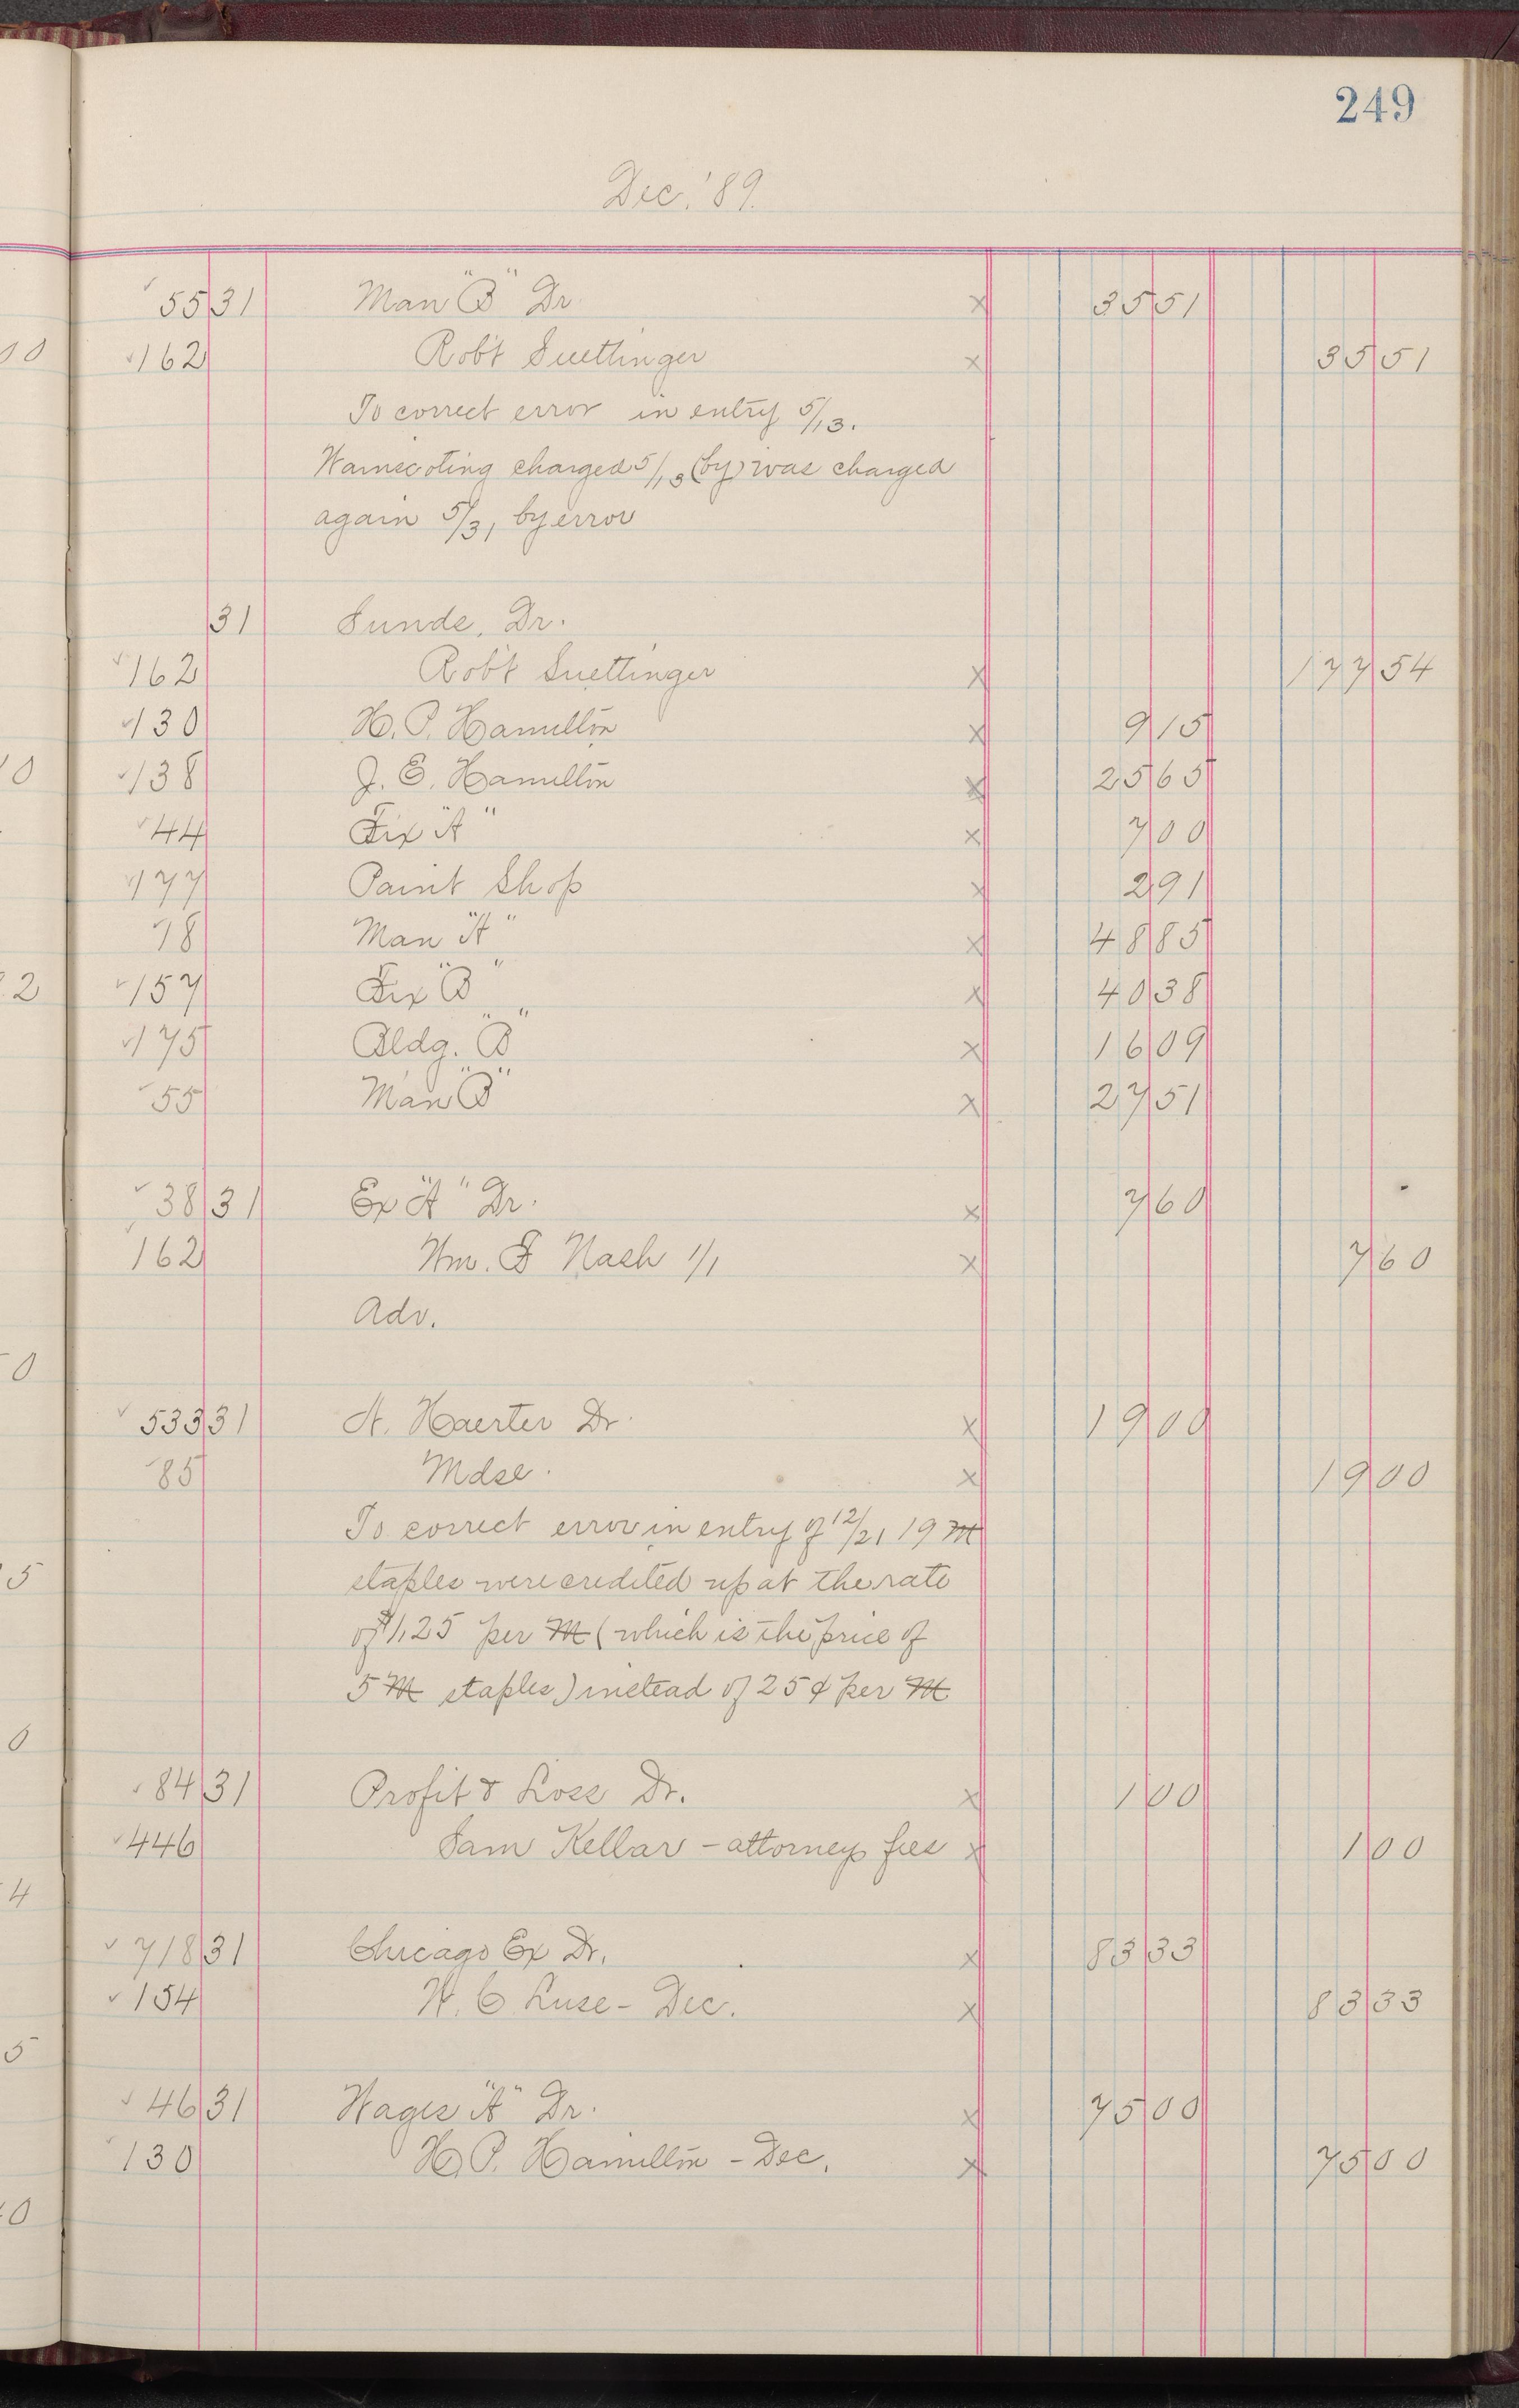 249
Dec. '89.
55 31 Man "B" Dr. x 35 51
162 Rob't Suettinger x 35 51
To correct error in entry 5/13.
Wainscoting charged 5/13 (by) was charged
again 5/31 by error
31 Sunds. Dr.
162 Rob't Suettinger x 177 54
130 H. P. Hamilton x 9 15
138 J. E. Hamilton x 25 65
44 Fix "A" x 7 00
177 Paint Shop x 2 91
78 Man "A" x 48 85
157 Fix "B" x 40 38
175 Bldg. "B" x 16 09
55 Man "B" x 27 51
38 31 Ex "A" Dr. x 7 60
162 Wm. F Nash 1/1 x 7 60
Adv.
533 31 A. Haerter Dr. x 19 00
85 Mdse. x 19 00
To correct error in entry of 12/21 19 M
staples were credited up at the rate
of $1.25 per M (which is the price of
5 M staples) instead of 25¢ per M
84 31 Profit & Loss Dr. x 1 00
446 Sam Kellar - attorneys fees x 1 00
718 31 Chicago Ex Dr. x 83 33
154 W. C. Luse - Dec. x 83 33
46 31 Wages "A" Dr. x 75 00
130 H. P. Hamilton - Dec. x 75 00